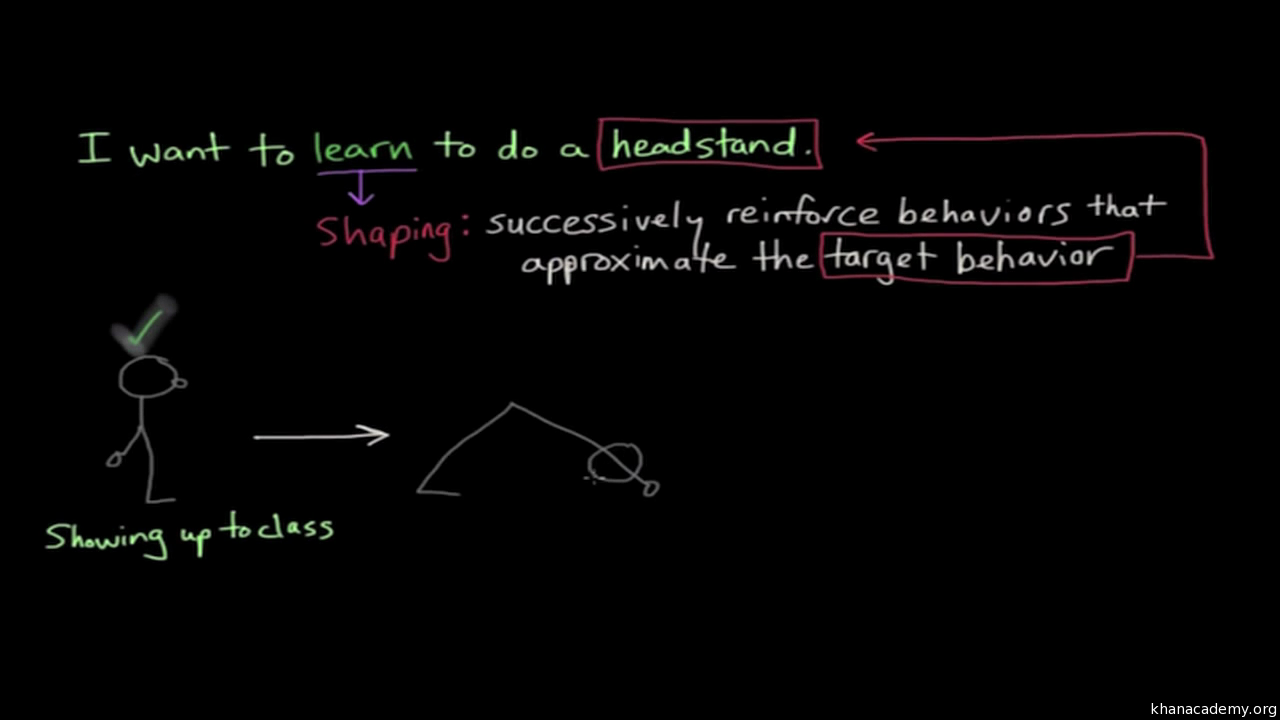 I want to learn to do a headstand.
Shaping: successively reinforce behaviors that
approximate the target behavior
Showing up to class
khanacademy.org